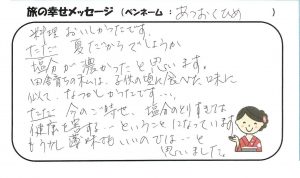 旅の幸せメッセージ（ペンネーム：あつおくひめ）
料理 おいしかったです。
ただ 夏だからでしょうか
塩分が 濃かったと思います。
田舎育ちの私は、子供の頃に食べた味に
似て、なつかしかったです…。
ただ 今のご時世、塩分のとりすぎは
健康を害する…ということになっています
もう少し 薄味でもいいのでは…と
思いました。